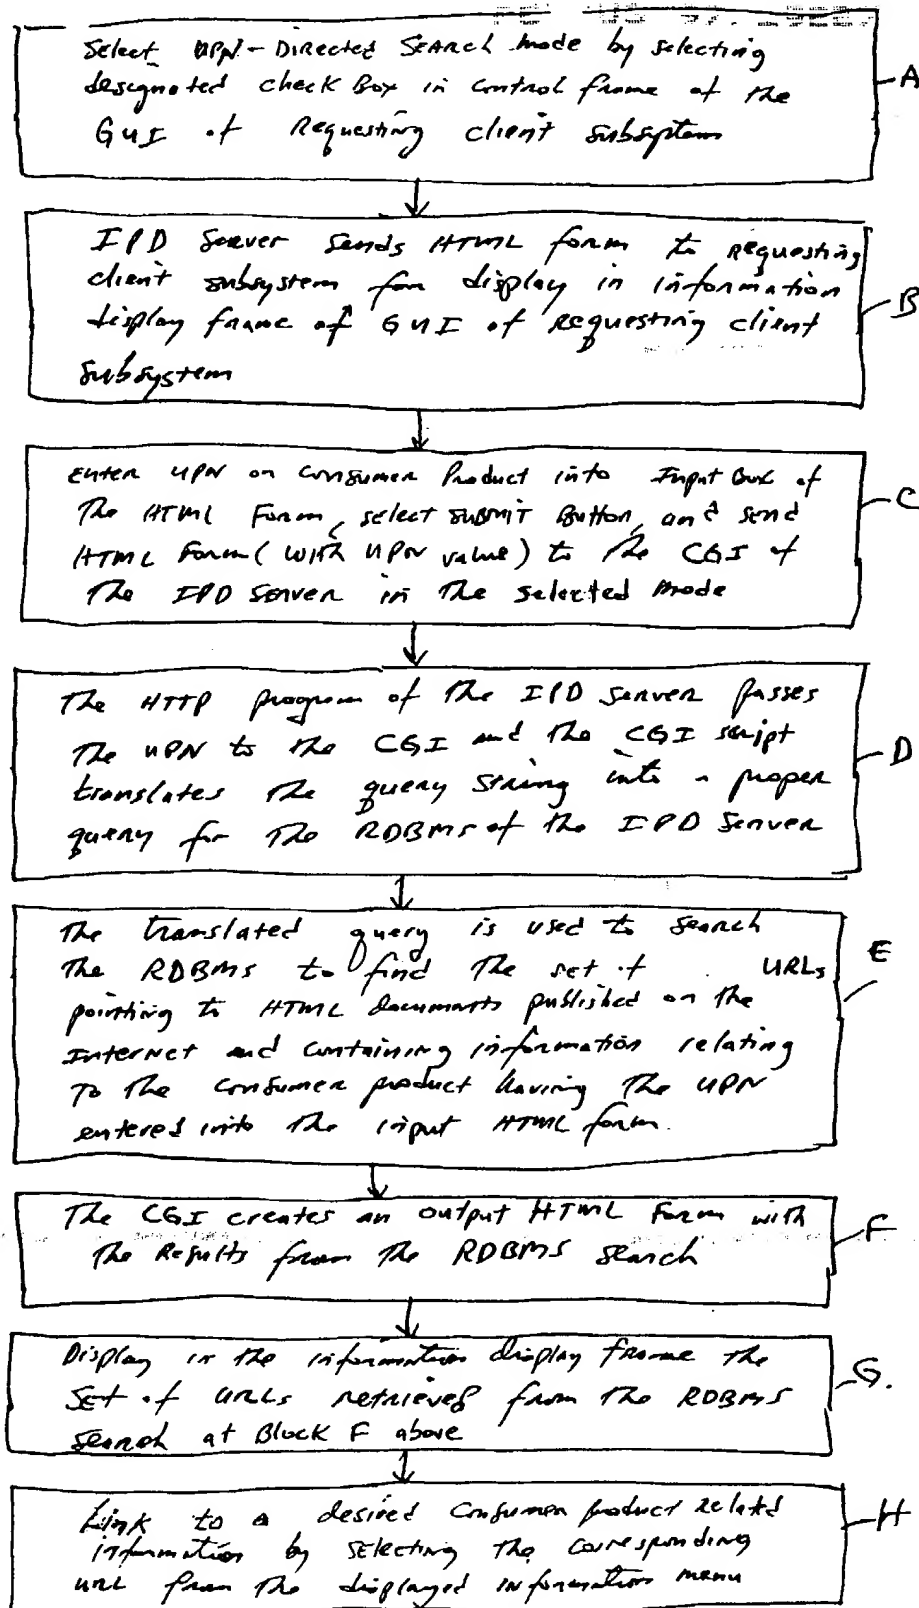 Select UPN-Directed Search mode by selecting
designated check Box in control frame of the
GUI of Requesting client subsystem
A
IPD Server sends HTML form to requesting
client subsystem for display in information
display frame of GUI of requesting client
subsystem
B
Enter UPN on Consumer Product into Input Box of
The HTML Form, select SUBMIT Button, and send
HTML Form (with UPN value) to the CGI of
The IPD Server in the selected mode
C
The HTTP program of the IPD Server passes
The UPN to the CGI and the CGI script
translates the query string into a proper
query for the RDBMS of the IPD Server
D
The translated query is used to search
the RDBMS to find the set of URLs
pointing to HTML documents published on the
Internet and containing information relating
To the consumer product having the UPN
entered into the input HTML form.
E
The CGI creates an output HTML Form with
the Results from the RDBMS search
F
Display in the information display frame the
Set of URLs retrieved from the RDBMS
search at Block F above
G.
Link to a desired Consumer product related
information by selecting the corresponding
URL from the displayed information menu
H